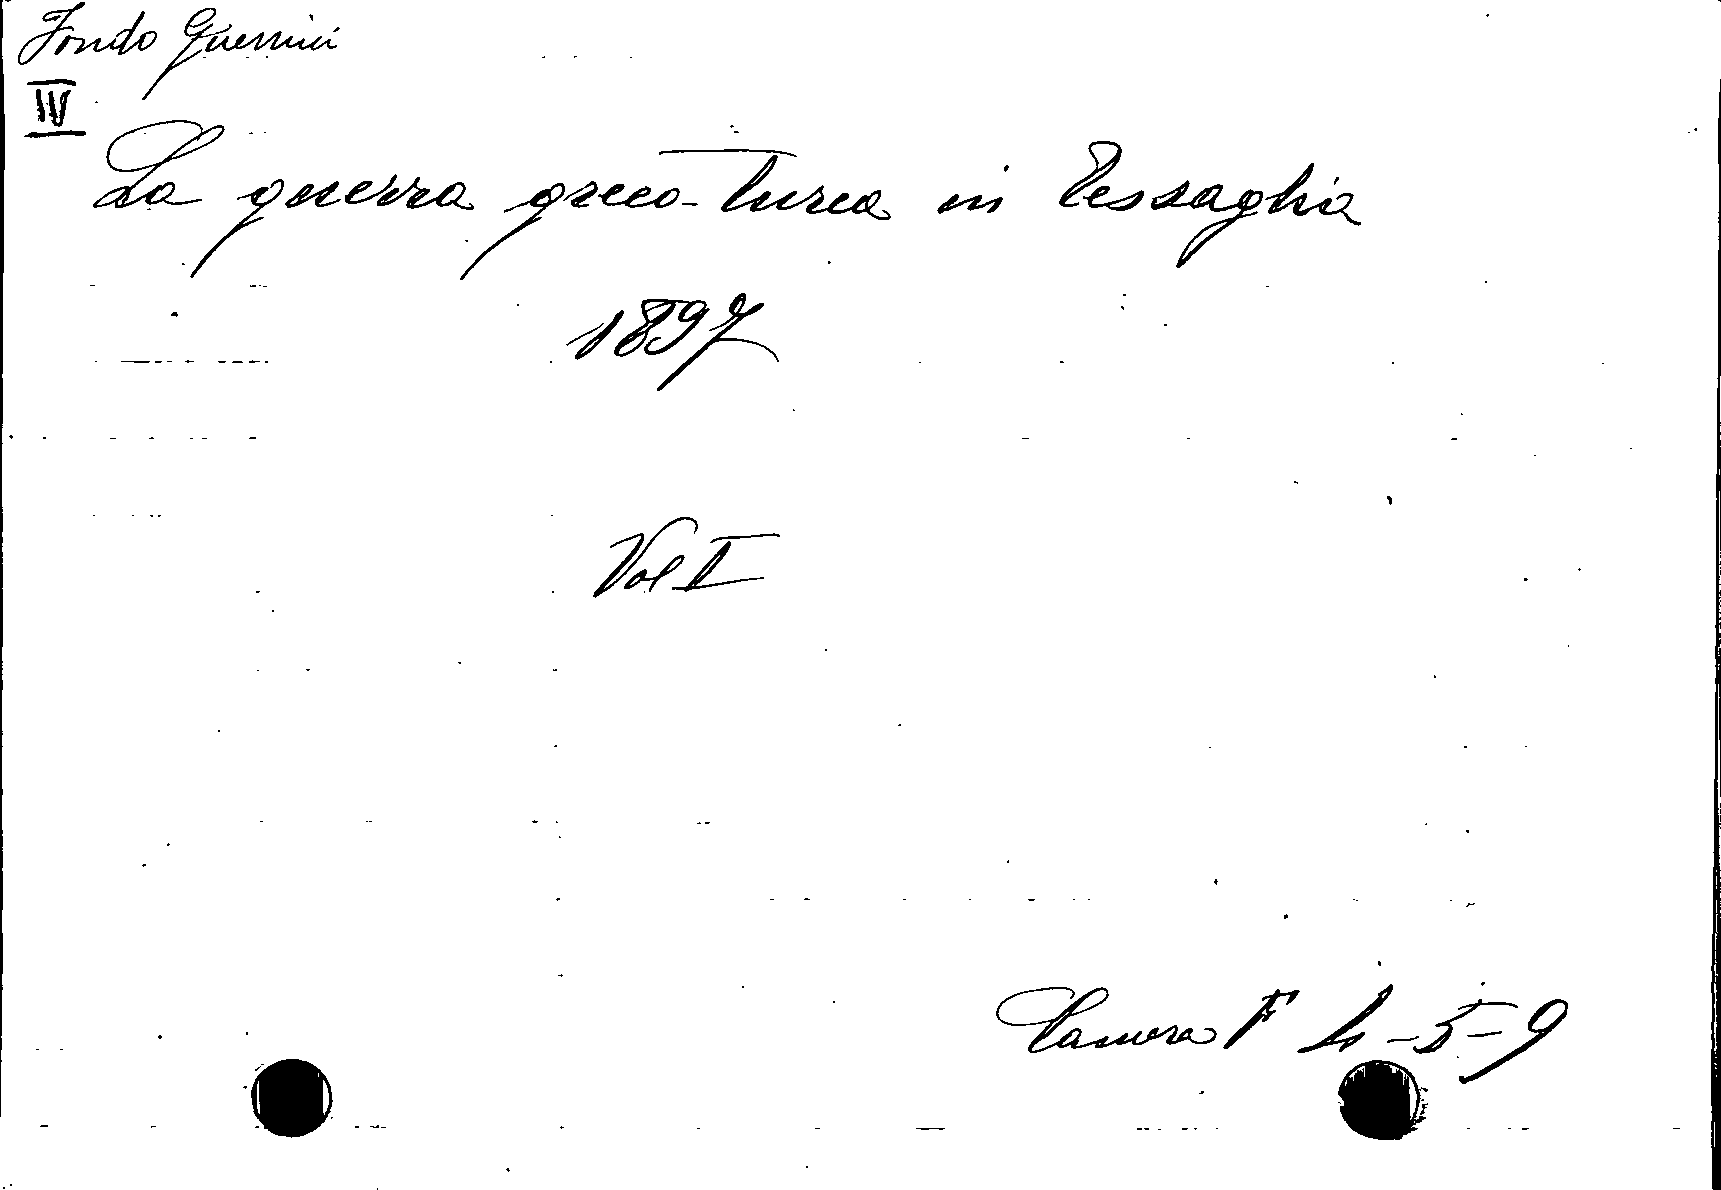 Fondo Guerrini
IV
La guerra greco-turca in Tessaglia
1897
Vol I
Camera F 4-5-9